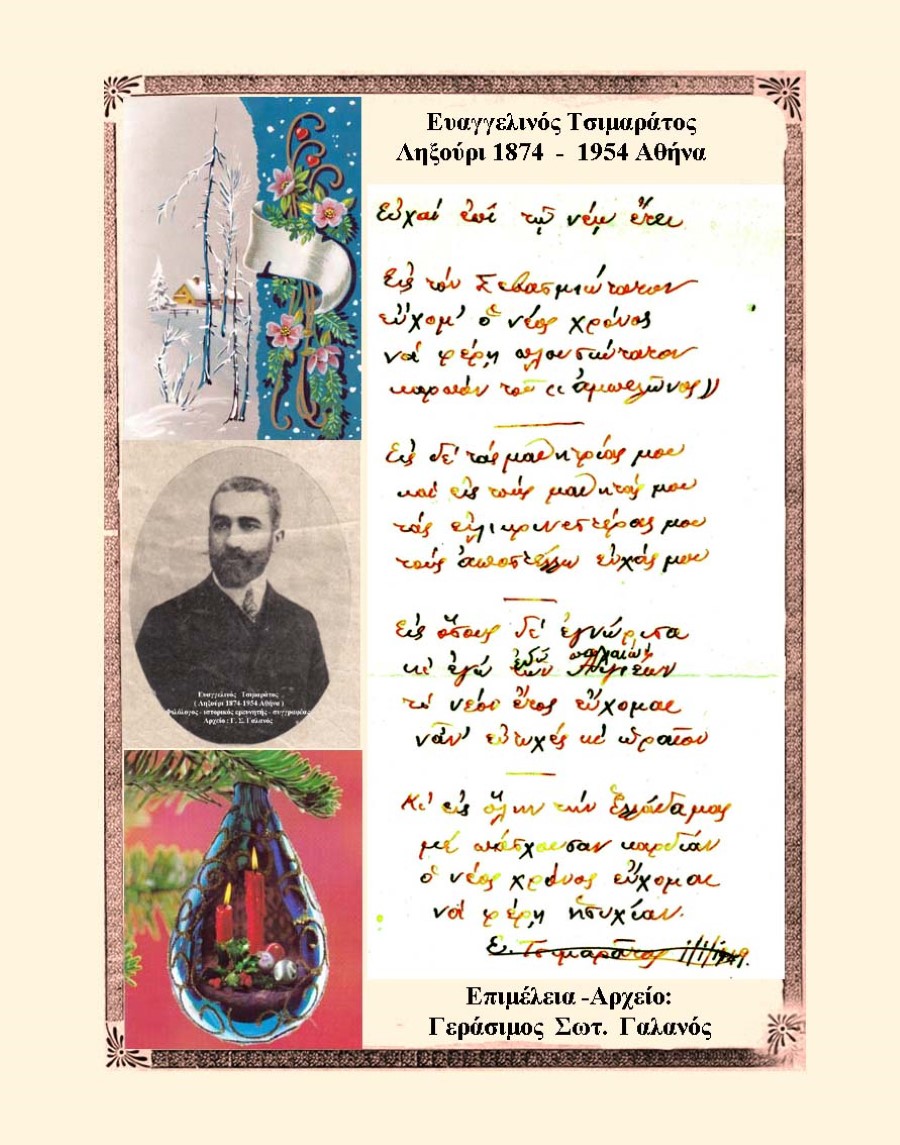 Ευαγγελινός Τσιμαράτος
Ληξούρι 1874 - 1954 Αθήνα
Εὐχαί ἐπί τῷ νέῳ ἔτει
Εἰς τόν Σεβασμιώτατον
εὔχομ' ὁ νέος χρόνος
νά φέρῃ πλουσιώτατον
καρπόν τοῦ «ἀμπελῶνος»
Εἰς δέ τάς μαθητρίας μου
καί εἰς τούς μαθητάς μου
τάς εἰλικρινεστέρας μου
τούς ἀποστέλλω εὐχάς μου
Εἰς ὅσους δέ ἐγνώρισα
κι ἐγώ ἐδώ παλαιών
τό νέον ἔτος εὔχομαι
νἆν' εὐτυχές κι ὡραῖον
Κι' εἰς ὅλην τήν Ἑλλάδα μας
μέ πάσχουσαν καρδίαν
ὁ νέος χρόνος εὔχομαι
νά φέρῃ ἡσυχίαν.
Ε. Τσιμαράτος 1/1/1949.
Ευαγγελινός Τσιμαράτος
( Ληξούρι 1874-1954 Αθήνα )
Φιλόλογος - ιστορικός ερευνητής - συγγραφέας
Αρχείο : Γ. Σ. Γαλανός
Επιμέλεια -Αρχείο:
Γεράσιμος Σωτ. Γαλανός